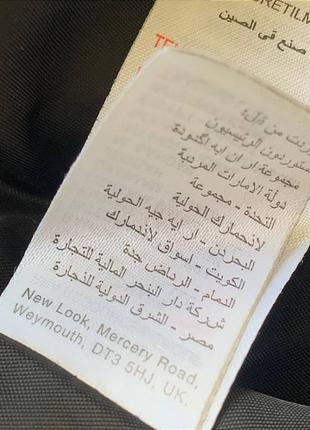 CRETILM
صنع فى الصين
TEL
وردت من قبل:
مستوردون الرئيسيون
مجموعة ار ان ايه اكنودة
دولة الامارات المردية
التحذة - مجموعة
لانحمارك الحولية
البحردن - ار ايه جيه الحولية
الكويت - اسواق لاندمارك
الدمام - الرياض جذة
شركة دار البنحر المالية للتجارة
مصر - الشرق الدولية للتجارة
New Look, Mercery Road,
Weymouth, DT3 5HJ, UK.